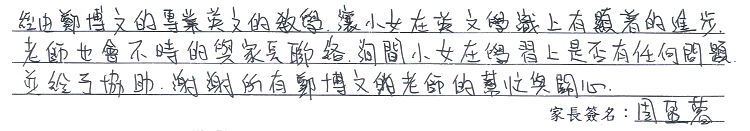 經由鄭博文的專業英文的教學,讓小女在英文學識上有顯著的進步.
老師也會不時的與家長聯絡.詢問小女在學習上是否有任何問題
並給予協助.謝謝所有鄭博文的老師的幫忙與關心.
家長簽名:周